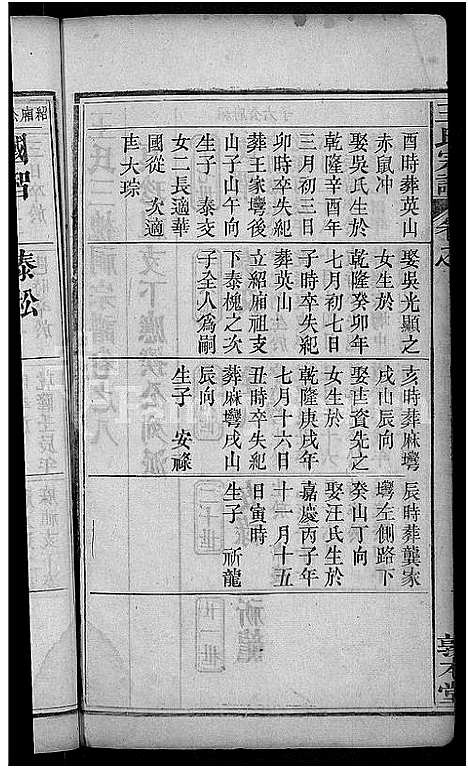 王氏宗譜
敦本堂
酉時葬英山
赤鼠冲
娶吳氏生於
乾隆辛酉年
三月初三日
卯時卒失紀
葬王家彎後
山子山午向
生子 泰亥
女二長適華
國從 次適
大琮
娶吳光顯之
女生於
乾隆癸卯年
七月初七日
子時卒失紀
葬英山
立紹廟祖支
下泰槐之次
子全人爲嗣
亥時葬麻彎
戌山辰向
娶吉資先之
女生於
乾隆庚戌年
七月十六日
丑時卒失紀
葬麻彎戌山
辰向
生子 安祿
辰時葬龔家
彎左側路下
癸山丁向
娶汪氏生於
嘉慶丙子年
十一月十五
日寅時
生子 祈龍
紹廟
國智
泰松